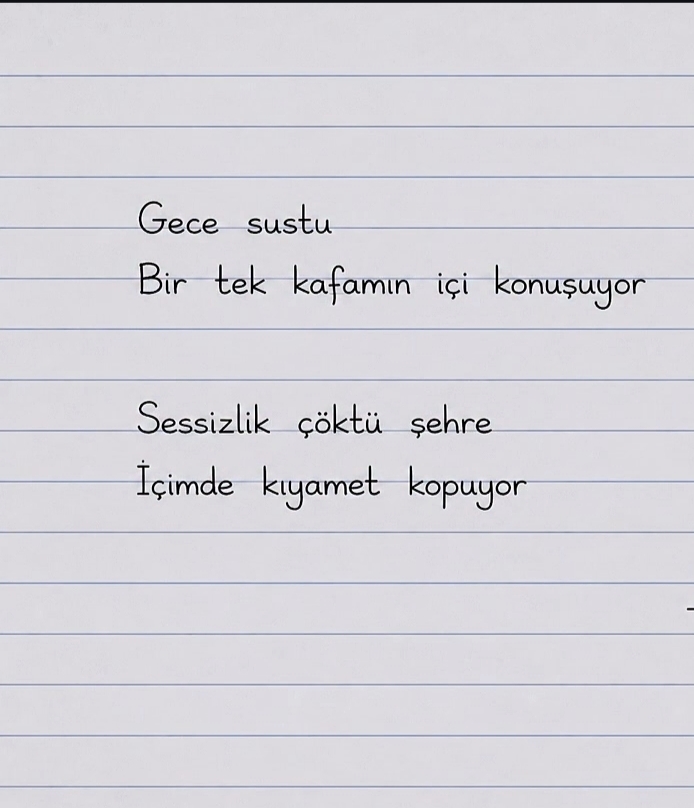 Gece sustu
Bir tek kafamın içi konuşuyor
Sessizlik çöktü şehre
İçimde kıyamet kopuyor